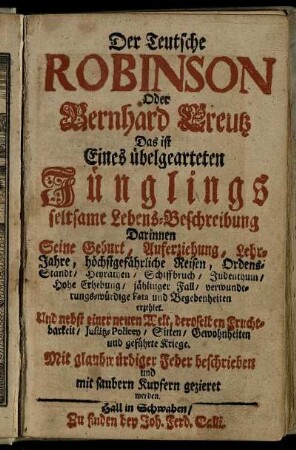 Der Teutsche
ROBINSON
Oder
Bernhard Creutz
Das ist
Eines übelgearteten
Jünglings
seltsame Lebens-Beschreibung
Darinnen
Seine Geburt, Auferziehung, Lehr-
Jahre, höchstgefährliche Reisen, Ordens-
Standt, Heyrathen, Schiffbruch, Judenthum,
Hohe Erhebung, jählinger Fall, verwunde-
rungs-würdige Fata und Begebenheiten
erzehlet.
Und nebst einer neuen Welt, deroselben Frucht-
barkeit, Justitz-Policey, Sitten, Gewohnheiten
und geführte Kriege.
Mit glaubwürdiger Feder beschrieben
und
mit saubern Kupfern gezieret
werden.
Hall in Schwaben,
Zu finden bey Joh. Ferd. Galli.